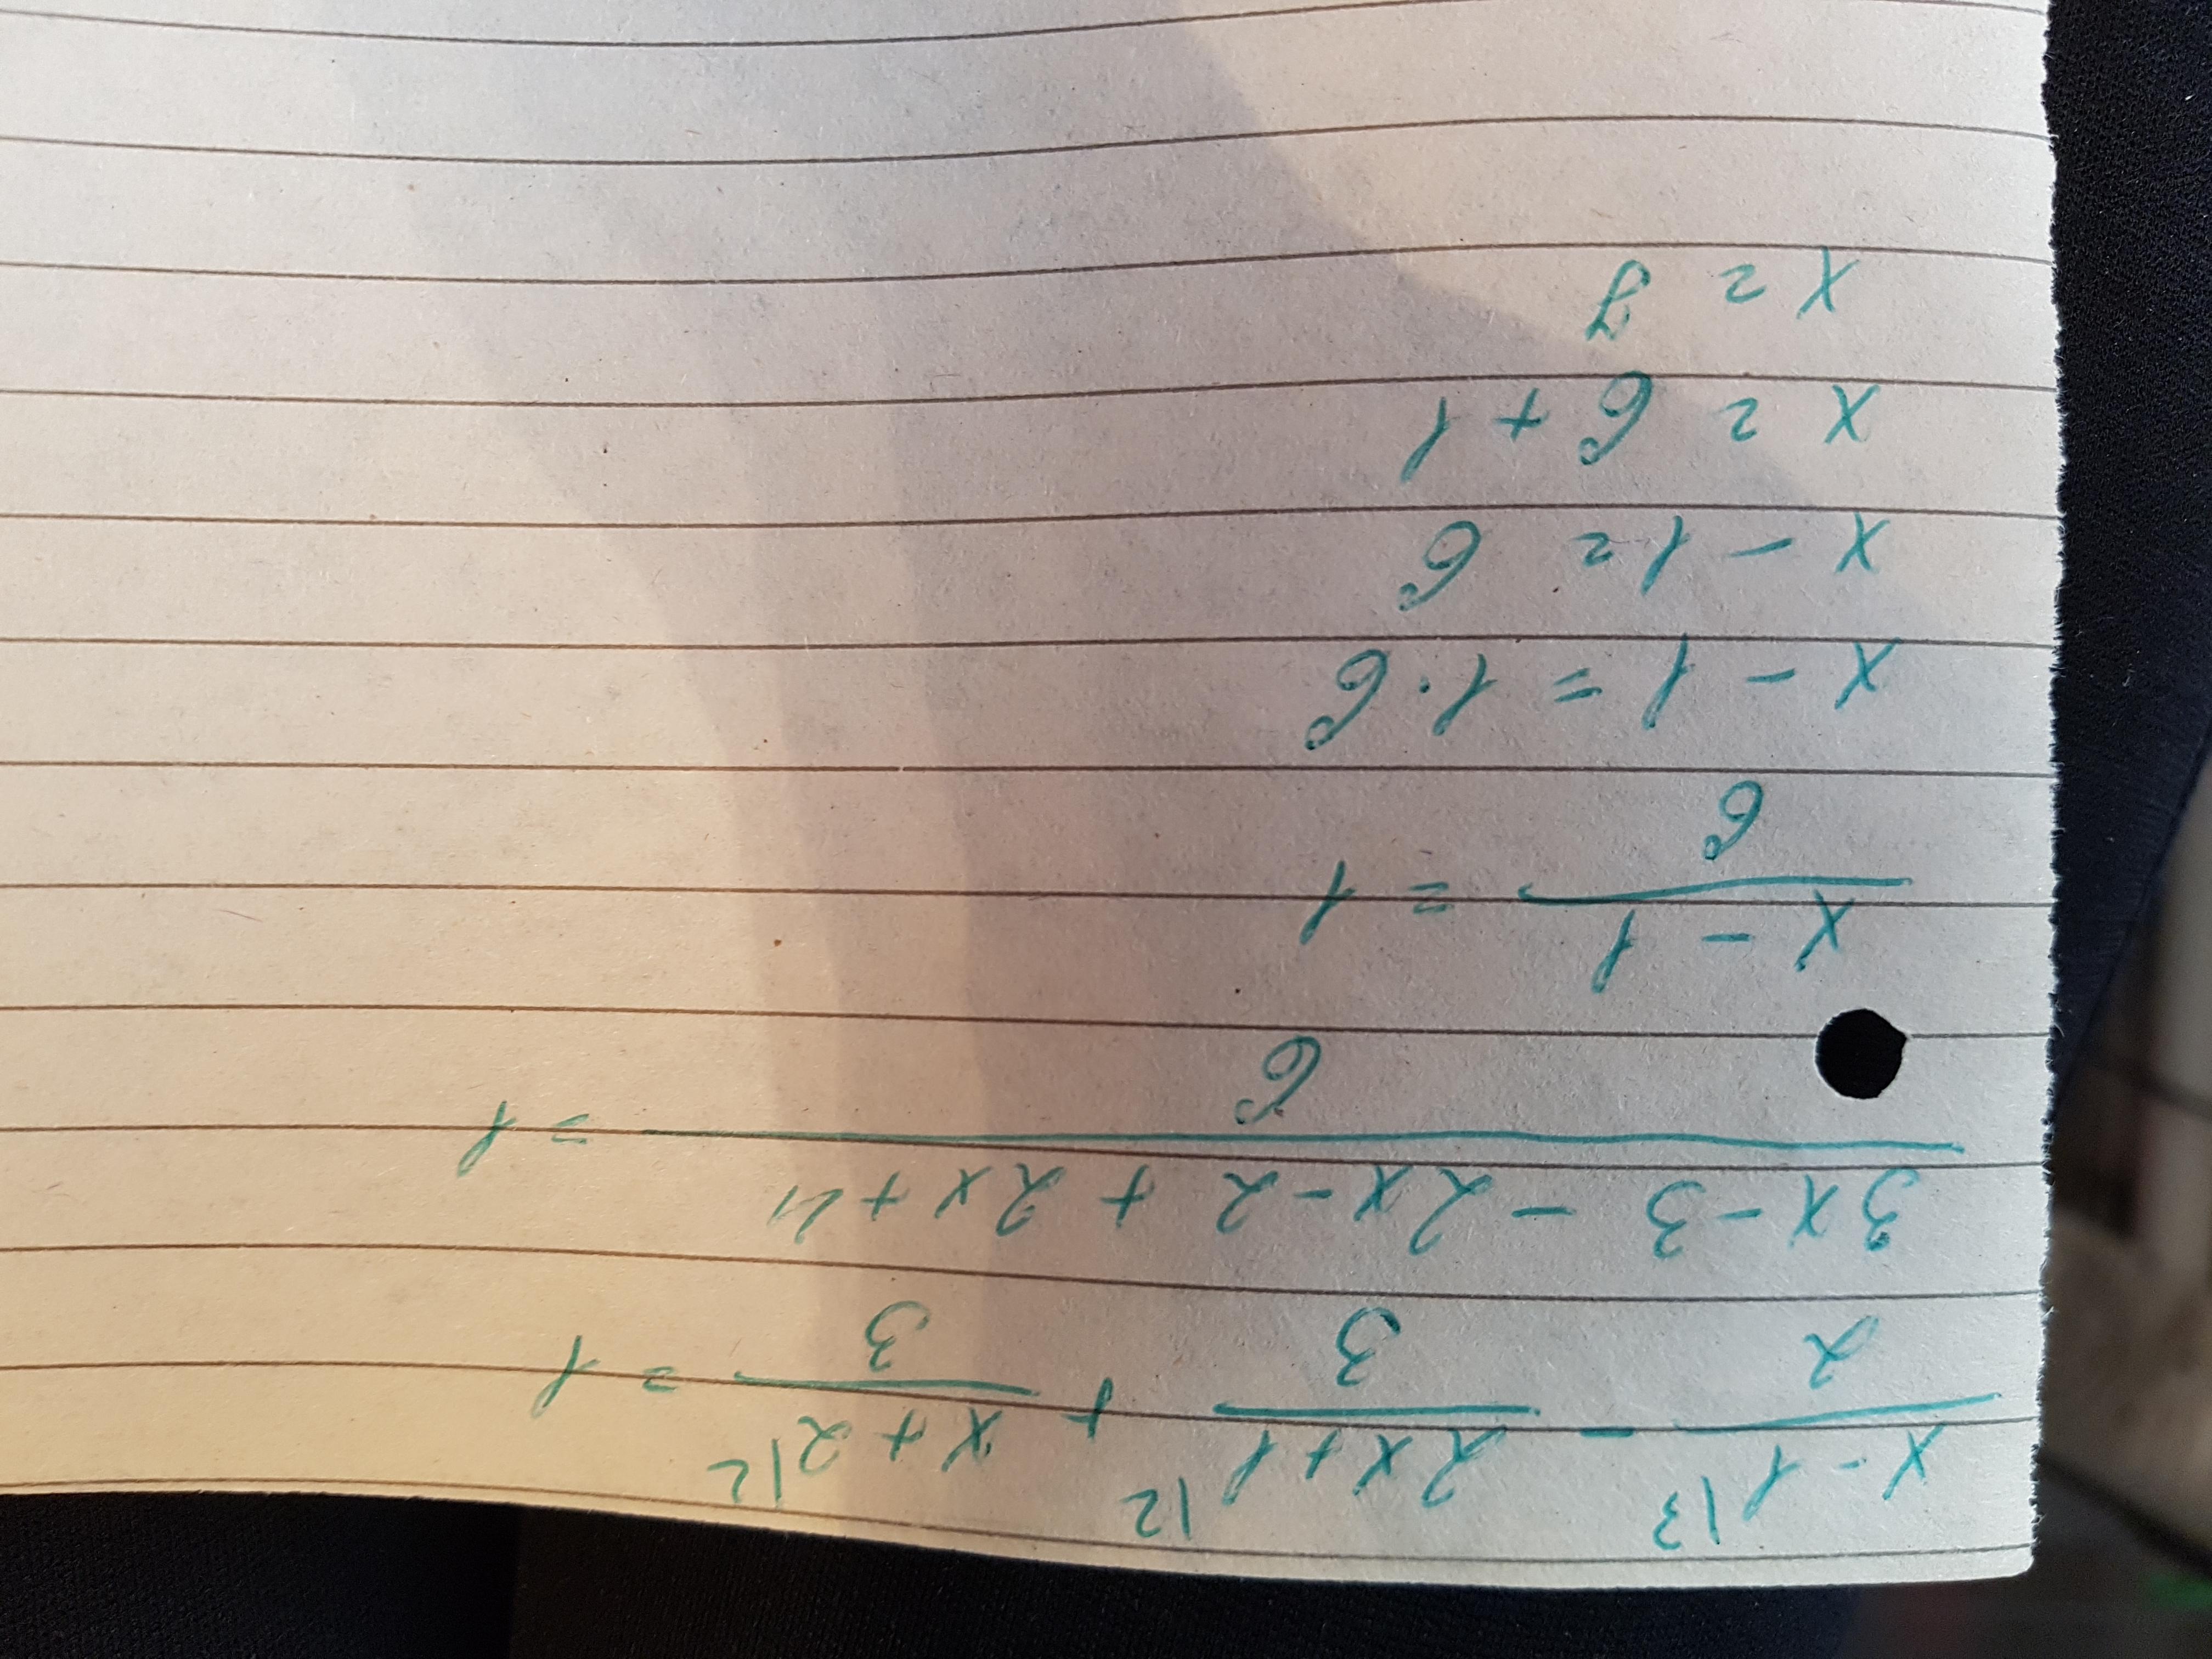 x - 1|3 / 2 - 2x + 1|2 / 3 + x + 2|2 / 3 = 1
3x - 3 - 2x - 2 + 2x + 4 / 6 = 1
x - 1 / 6 = 1
x - 1 = 1 · 6
x - 1 = 6
x = 6 + 1
x = 7